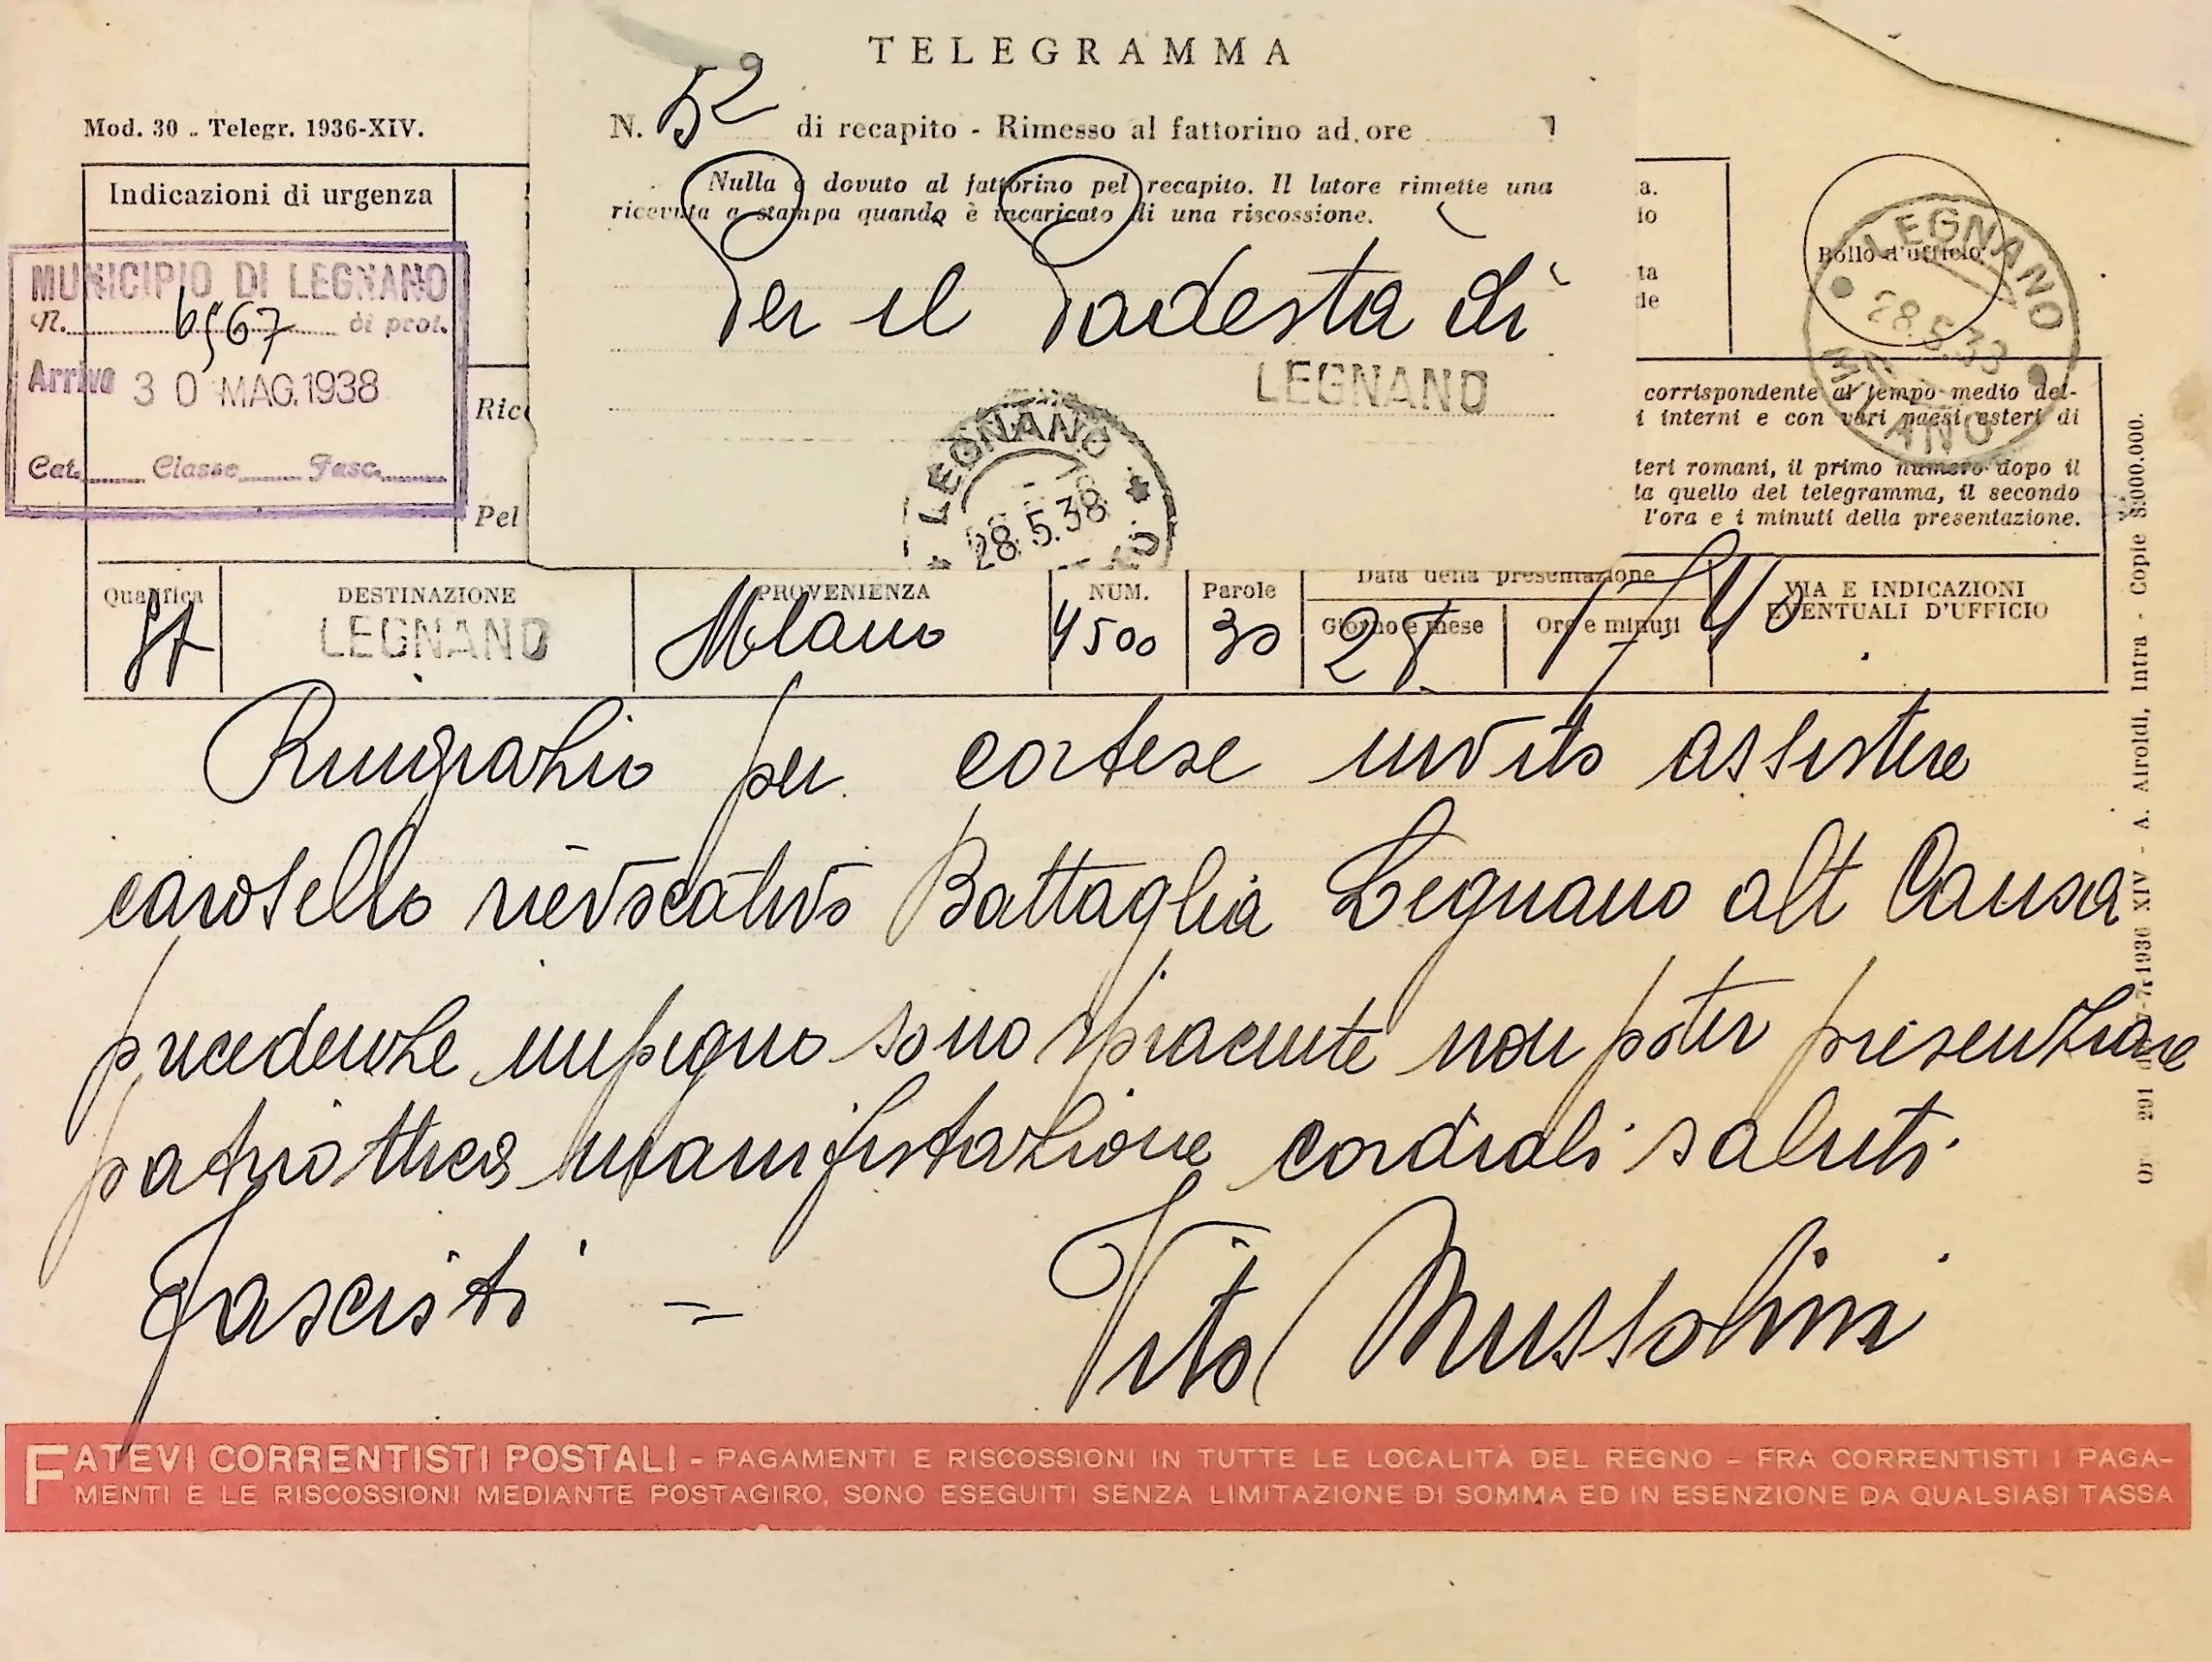 TELEGRAMMA
Mod. 30 - Telegr. 1936-XIV.
N. 52 di recapito - Rimesso al fattorino ad ore
Nulla è dovuto al fattorino pel recapito. Il latore rimette una
ricevuta a stampa quando è incaricato di una riscossione.
Per il Podestà di
LEGNANO
LEGNANO
28.5.38
Indicazioni di urgenza
MUNICIPIO DI LEGNANO
N. 6567 di prot.
Arrivo 30 MAG. 1938
Cat. Classe Fasc.
Pel
a.
io
ta
de
Bollo d'ufficio
LEGNANO
28.5.38
MILANO
corrispondente al tempo medio del-
i interni e con vari paesi esteri di
teri romani, il primo numero dopo il
ta quello del telegramma, il secondo
l'ora e i minuti della presentazione.
Qualifica
DESTINAZIONE LEGNANO
PROVENIENZA Milano
NUM. 4500
Parole 30
Data della presentazione
Giorno e mese 28
Ore e minuti 17 40
VIA E INDICAZIONI
EVENTUALI D'UFFICIO
Ringrazio per cortese invito assistere
carosello rievocativo Battaglia Legnano alt Causa
precedente impegno sono spiacente non poter presenziare
patriottica manifestazione cordiali saluti
fascisti = Vito Mussolini
FATEVI CORRENTISTI POSTALI - PAGAMENTI E RISCOSSIONI IN TUTTE LE LOCALITÀ DEL REGNO - FRA CORRENTISTI I PAGA-
MENTI E LE RISCOSSIONI MEDIANTE POSTAGIRO, SONO ESEGUITI SENZA LIMITAZIONE DI SOMMA ED IN ESENZIONE DA QUALSIASI TASSA
291 1936 XIV - A. Airoldi, Intra - Copie 8.000.000.